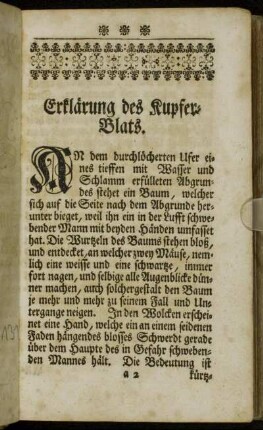 Erklärung des Kupfer-
Blats.
AN dem durchlöcherten Ufer ei-
nes tieffen mit Wasser und
Schlamm erfülleten Abgrun-
des stehet ein Baum, welcher
sich auf die Seite nach dem Abgrunde her-
unter bieget, weil ihn ein in der Lufft schwe-
bender Mann mit beyden Händen umfasset
hat. Die Wurtzeln des Baums stehen bloß,
und entdecket, an welcher zwey Mäuse, nem-
lich eine weisse und eine schwartze, immer
fort nagen, und selbige alle Augenblicke dün-
ner machen, auch solchergestalt den Baum
je mehr und mehr zu seinem Fall und Un-
tergange neigen. In den Wolcken erschei-
net eine Hand, welche ein an einem seidenen
Faden hängendes blosses Schwerdt gerade
über dem Haupte des in Gefahr schweben-
den Mannes hält. Die Bedeutung ist
a 2 kürtz-